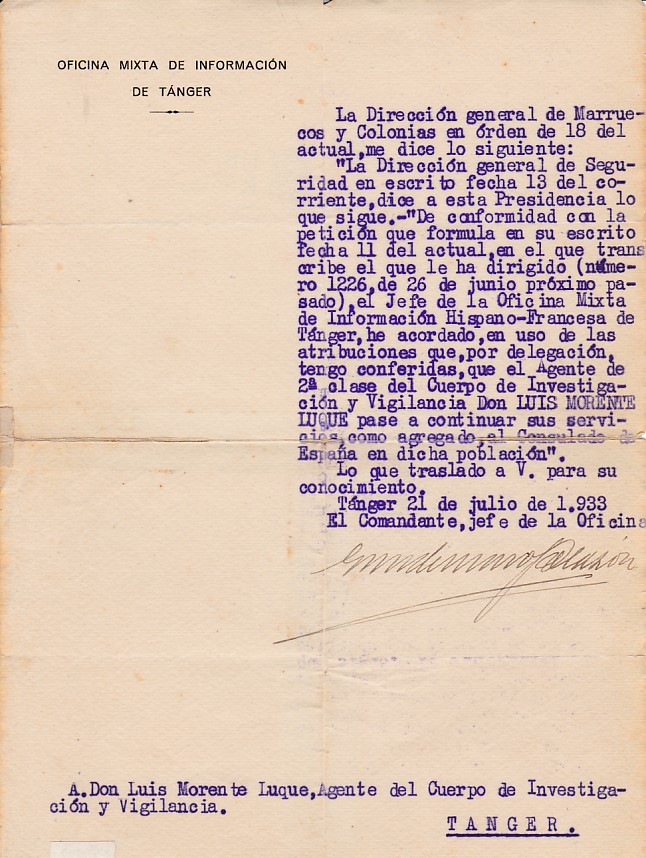 OFICINA MIXTA DE INFORMACIÓN
DE TÁNGER
La Dirección general de Marrue-
cos y Colonias en órden de 18 del
actual,me dice lo siguiente:
"La Dirección general de Segu-
ridad en escrito fecha 13 del co-
rriente,dice a esta Presidencia lo
que sigue.-"De conformidad con la
petición que formula en su escrito
fecha 11 del actual,en el que trans
cribe el que le ha dirigido (núme-
ro 1226,de 26 de junio próximo pa-
sado),el Jefe de la Oficina Mixta
de Información Hispano-Francesa de
Tánger,he acordado,en uso de las
atribuciones que,por delegación,
tengo conferidas,que el Agente de
2ª clase del Cuerpo de Investiga-
ción y Vigilancia Don LUIS MORENTE
LUQUE pase a continuar sus servi-
cios,como agregado,al Consulado de
España en dicha población".
Lo que traslado a V. para su
conocimiento.
Tánger 21 de julio de 1.933
El Comandante,jefe de la Oficina
A.Don Luis Morente Luque,Agente del Cuerpo de Investiga-
ción y Vigilancia.
TANGER.